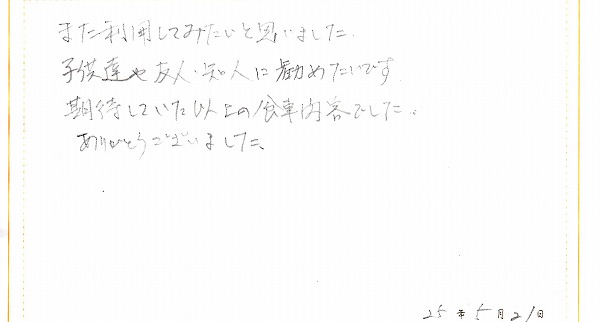 また利用してみたいと思いました.
子供達や友人・知人に勧めたいです.
期待していた以上の食事内容でした.
ありがとうございました.
25年5月21日